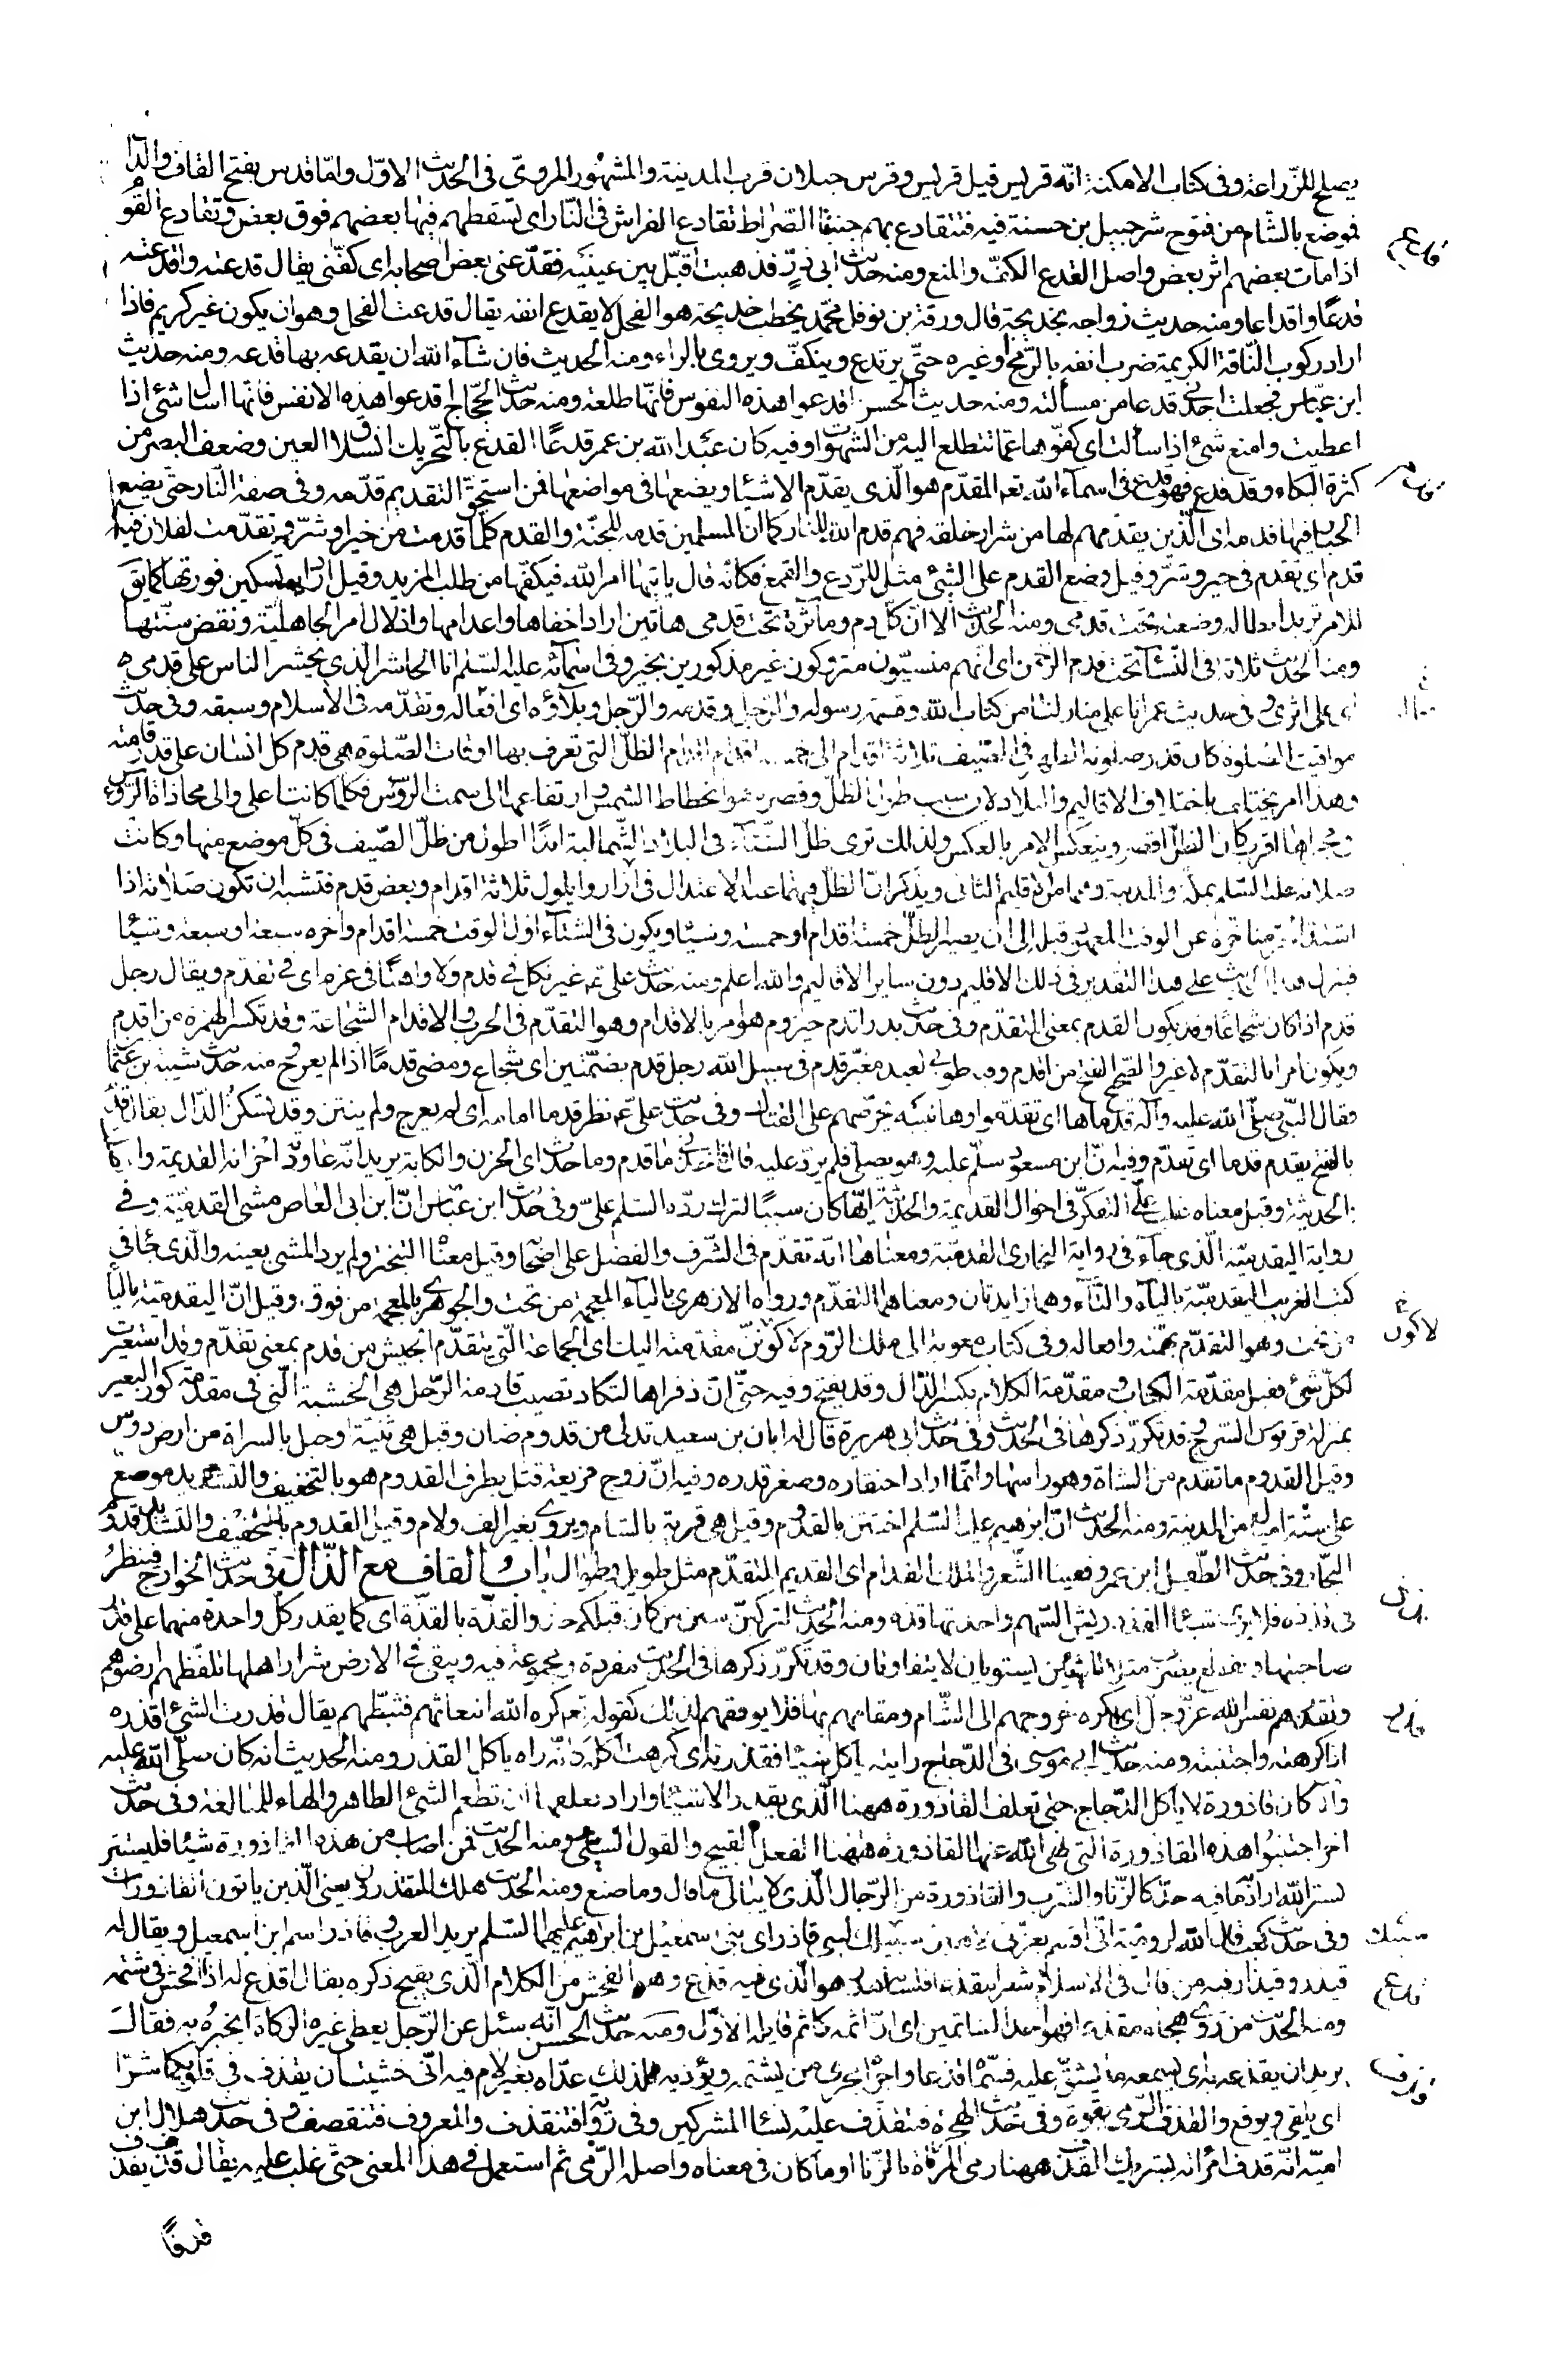 يصلح للزّراعة وفى كتاب الامكنة انّه قريس قيل قريس وقرس جبلان قرب المدينة والمشهور المروىّ فى الحديث الاوّل وامّا قدس بفتح القاف والدّا
فموضع بالشّام من فتوح شرحبيل بن حسنة فيه فتتقادع بهم جنبتا الصّراط تقادع الفراش فى النّار اى تسقطهم فيها بعضهم فوق بعض وتقادع القو
قدع
اذا مات بعضهم اثر بعض واصل القدع الكفّ والمنع ومنه حديث ابى ذرّ فذهبت اقبّل بين عينيه فقدعنى بعض اصحابه اى كفّنى يقال قدعته واقدعته
قدعًا واقداعا ومنه حديث زواجه بخديجة قال ورقة بن نوفل محمّد يخطب خديجة هو الفحل لا يقدع انفه يقال قدعت الفحل وهو ان يكون غير كريم فاذا
اراد ركوب النّاقة الكريمة ضرب انفه بالرّمح او غيره حتّى يرتدع وينكفّ ويروى بالراء ومنه الحديث فان شآء الله ان يقدعه بها قدعه ومنه حديث
ابن عبّاس فجعلت اجد بى قدعا من مسألته ومنه حديث الحسن اقدعوا هذه النفوس فانّها طلعة ومنه حديث الحجّاج اقدعوا هذه الانفس فانّها اسأل شئ اذا
اعطيت وامنع شئ اذا سألت اى كفّوها عمّا تتطلّع اليه من الشهوات وفيه كان عبد الله بن عمر قدعًا القدع بالتّحريك انسلاق العين وضعف البصر من
كثرة البكاء وقد قدع فهو قدع فى اسمآء الله تعالى المقدّم هو الّذى يقدّم الاشيآء ويضعها فى مواضعها فمن استحقّ التقديم قدّمه وفى صفة النّار حتّى يضع
قدم
الجبّار فيها قدمه اى الّذين يقدّمهم لها من شرار خلقه فهم قدم الله للنّار كما ان المسلمين قدمه للجنّة والقدم كلّما قدّمت من خير او شرّ وتقدّمت لفلان فيه
قدم اى تقدّم فى خير وشرّ وقيل وضع القدم على الشئ مثل للرّدع والقمع فكانّه قال ياتيها امر الله فيكفّها من طلب المزيد وقيل اراد به تسكين فورتها كما يق
للامر تريد ابطاله وضعته تحت قدمى ومنه الحديث الا انّ كلّ دم ومأثرة تحت قدمى هاتين اراد اخفاها واعدامها واذلال امر الجاهليّة ونقض سنّتها
ومنه الحديث ثلاثة فى المنسأ تحت قدم الرّحمن اى انّهم منسيّون متروكون غير مذكورين بخير وفى اسمآئه عليه السّلم انا الحاشر الّذى يحشر الناس على قدمى
اى على اثرى وفى حديث عمر انا على منازلنا من كتاب الله وقسمة رسوله والرّجل وقدمه والرّجل وبلاؤه اى افعاله وتقدّمه فى الاسلام وسبقه وفى حديث
مواقيت الصّلوة كان قدر صلوته الظهر فى الصّيف ثلاثة اقدام الى خمسة اقدام اقدام الظلّ الّتى تعرف بها اوقات الصّلوة هى قدم كل انسان على قدر قامته
وهذا امر يختلف باختلاف الاقاليم والبلاد لان سبب طول الظلّ وقصره هو انحطاط الشمس وارتفاعها الى سمت الرّؤس فكلّما كانت اعلى والى محاذاة الرّؤس
فى مجراها اقرب كان الظلّ اقصر وينعكس الامر بالعكس ولذلك ترى ظلّ الشتآء فى البلاد الشّماليّة ابدًا اطول من ظلّ الصّيف فى كلّ موضع منها وكانت
صلاته عليه السّلم بمكّة والمدينة وهما من الاقليم الثانى ويذكر انّ الظلّ فيهما عند الاعتدال فى آذار وايلول ثلاثة اقدام وبعض قدم فتشبه ان تكون صلاته اذا
اشتدّ الحرّ متأخّرة عن الوقت المعهود قبله الى ان يصير الظلّ خمسة اقدام او خمسة وشيئا ويكون فى الشتآء اول الوقت خمسة اقدام وآخره سبعة او سبعة وشيئا
فينزل هذا الحديث على هذا التقدير فى ذلك الاقليم دون ساير الاقاليم والله اعلم ومنه حديث علىّ غير نكل فى قدم ولا واهنًا فى عزم اى فى تقدّم ويقال رجل
قدم اذا كان شجاعًا وقد يكون القدم بمعنى المتقدّم وفى حديث بدر اقدم حيزوم هو امر بالاقدام وهو التقدّم فى الحرب والاقدام الشّجاعة وقد تكسر الهمزة من اقدم
ويكون امرا بالتقدّم لا غير والصّحيح الفتح من اقدم وفيه طوبى لعبد مغبّر قدم فى سبيل الله رجل قدم بضمّتين اى شجاع ومضى قدمًا اذا لم يعرّج ومنه حديث شيبة بن عثمان
فقال النّبىّ صلّى الله عليه وآله قدمًا ها اى تقدّموا وها تنبيه يحرّضهم على القتال وفى حديث علىّ نظر قدما امامه اى لم يعرج ولم ينثن وقد تسكن الدّال يقال قدم
بالفتح يقدم قدما اى تقدّم وفيه انّ ابن مسعود سلّم عليه وهو يصلّى فلم يردّ عليه قال فاخذنى ما قدم وما حدث اى الحزن والكآبة يريد انّه عاودته احزانه القديمة واتّصلت
بالحديثة وقيل معناه غلب علىّ التفكّر فى احوالى القديمة والحديثة ايّها كان سببًا لترك ردّه السّلم علىّ وفى حديث ابن عبّاس انّ ابن ابى العاص مشى القدميّة وفى
رواية اليقدميّة الّذى جآء فى رواية البخارى القدميّة ومعناها انّه تقدّم فى الشّرف والفضل على اصحابه وقيل معناه التبختر ولم يرد المشى بعينه والّذى جآء فى
كتب الغريب اليقدميّة بالياء والتّآء وهما زايدتان ومعناهما التقدّم ورواه الازهرى بالياء المعجمة من تحت والجوهرى بالمعجمة من فوق وقيل انّ اليقدميّة بالياء
من تحت وهو التقدّم بهمّته وافعاله وفى كتاب معوية الى ملك الرّوم لاكوننّ مقدّمته اليك اى الجماعة الّتى تتقدّم الجيش من قدم بمعنى تقدّم وقد استعيرت
لاكون
لكلّ شئ فقيل مقدّمة الكتاب ومقدّمة الكلام بكسر الدّال وقد تفتح وفيه حتّى انّ ذفراها لتكاد تصيب قادمة الرّحل هى الخشبة الّتى فى مقدّمة كور البعير
بمنزلة قربوس السّرج قد تكرّر ذكرها فى الحديث وفى حديث ابى هريرة قال له ابان بن سعيد تدلّى من قدوم ضان وقيل هى ثنيّة او جبل بالسراة من ارض دوس
وقيل القدوم ما تقدّم من الشاة وهو راسها وانّما اراد احتقاره وصغر قدره وفيه انّ زوج فريعة قتل بطرف القدوم هو بالتخفيف والتشديد موضع
على ستّة اميال من المدينة ومنه الحديث انّ ابرهيم عليه السّلم اختتن بالقدوم وقيل هى قرية بالشام ويروى بغير الف ولام وقيل القدوم بالتّخفيف والتشديد قدوم
النجّار وفى حديث الطّفيل ابن عمرو ففينا الشّعر والملك القدام اى القديم المتقدّم مثل طويل وطوال باب القاف مع الذّال فى حديث الخوارج فينظر
فى قذذه فلا يرى شيئا القذذ ريش السّهم واحدتها قذّة ومنه الحديث لتركبنّ سنن من كان قبلكم حذو القذّة بالقذّة اى كما يقدر كلّ واحدة منهما على قدر
صاحبتها وتقطع يضرب مثلا للشيئين يستويان لا يتفاوتان وقد تكرّر ذكرها فى الحديث مفردة ومجموعة فيه ويبقى فى الارض شرار اهلها تلفظهم ارضوهم
وتقذرهم نفس الله عزّ وجلّ اى يكره خروجهم الى الشّام ومقامهم بها فلا يوفقهم لذلك كقوله تعالى كره الله انبعاثهم فثبّطهم يقال قذرت الشئ اقذره
قذر
اذا كرهته واجتنبته ومنه حديث ابى موسى فى الدّجاج رايته ياكل شيئا فقذرته اى كرهت اكله كانّه راه ياكل القذر ومنه الحديث انه كان صلّى الله عليه
وآله كان قاذورة لا ياكل الدّجاج حتى تعلف القاذورة ههنا الّذى يقذر الاشيآء واراد بعلفها ان تطعم الشئ الطاهر والهاء للمبالغة وفى حديث
اخر اجتنبوا هذه القاذورة التى نهى الله عنها القاذورة ههنا الفعل القبيح والقول السّيئ ومنه الحديث فمن اصاب من هذه القاذورة شيئا فليستتر
بستر الله اراد ما فيه حدّ كالزّنا والشّرب والقاذورة من الرّجال الّذى لا يبالى ما قال وما صنع ومنه الحديث هلك المتقذّرون يعنى الّذين ياتون القاذورات
وفى حديث كعب قال الله لروميّة انّى اقسم بعزّتى لاهبنّ سبيك لبنى قاذر اى بنى اسمعيل بن ابرهيم عليهما السّلم يريد العرب وقاذر اسم ابن اسمعيل ويقال له
سبيك
قيذر وقيذار فيه من قال فى الاسلام شعرا مقذعا فلسانه هدر هو الّذى فيه قذع وهو الفحش من الكلام الّذى يقبح ذكره يقال اقذع له اذا افحش فى شتمه
قذع
ومنه الحديث من روى هجاء مقذعا فهو احد الشاتمين اى انّ اثمه كاثم قايله الاوّل ومنه حديث الحسن انّه سئل عن الرّجل يعطى غيره الزكاة ايخبره به فقال
يريد ان يقذعه به اى يسمعه ما يشقّ عليه فسمّاه قذعا واجراه مجرى من يشتمه ويؤذيه فلذلك عدّاه بغير لام فيه انّى خشيت ان يقذف فى قلوبكما شرّا
قذف
اى يلقى ويوقع والقذف الرّمى بقوّة وفى حديث الهجرة فتتقذّف عليه نسآء المشركين وفى رواية فتنقذف والمعروف فتتقصف وفى حديث هلال ابن
اميّة انّه قذف امراته بشريك القذف ههنا رمى المرأة بالزّنا او ما كان فى معناه واصله الرّمى ثم استعمل فى هذا المعنى حتّى غلب عليه يقال قذف يقذف
قذفًا